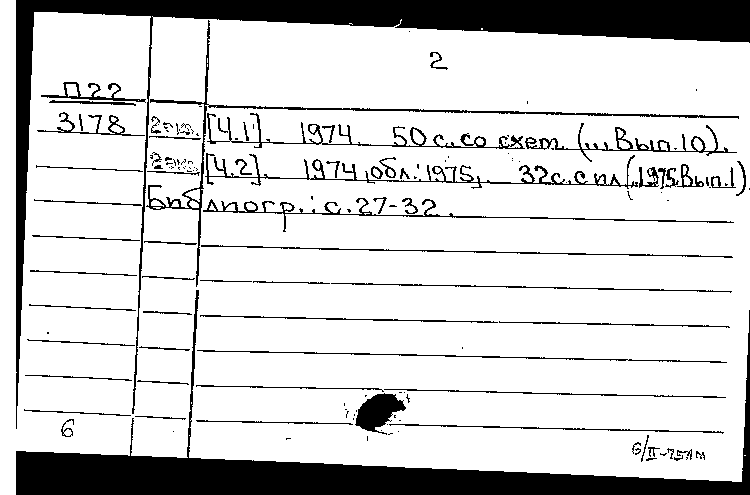 2
П22
3178 2экз. [Ч.1]. 1974. 50 с. со схем. (... Вып. 10).
2экз. [Ч.2]. 1974, обл.: 1975,. 32с. с ил (...1975. Вып.1)
Библиогр.: с. 27-32.
6
6/II-75г